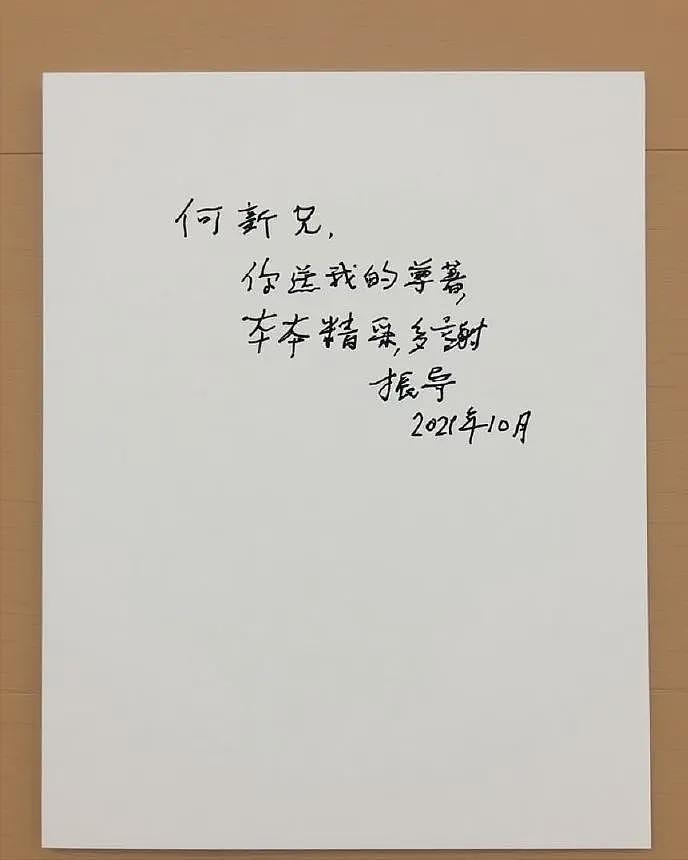 何新兄,
你送我的尊著,
本本精采,多謝
振宁
2021年10月